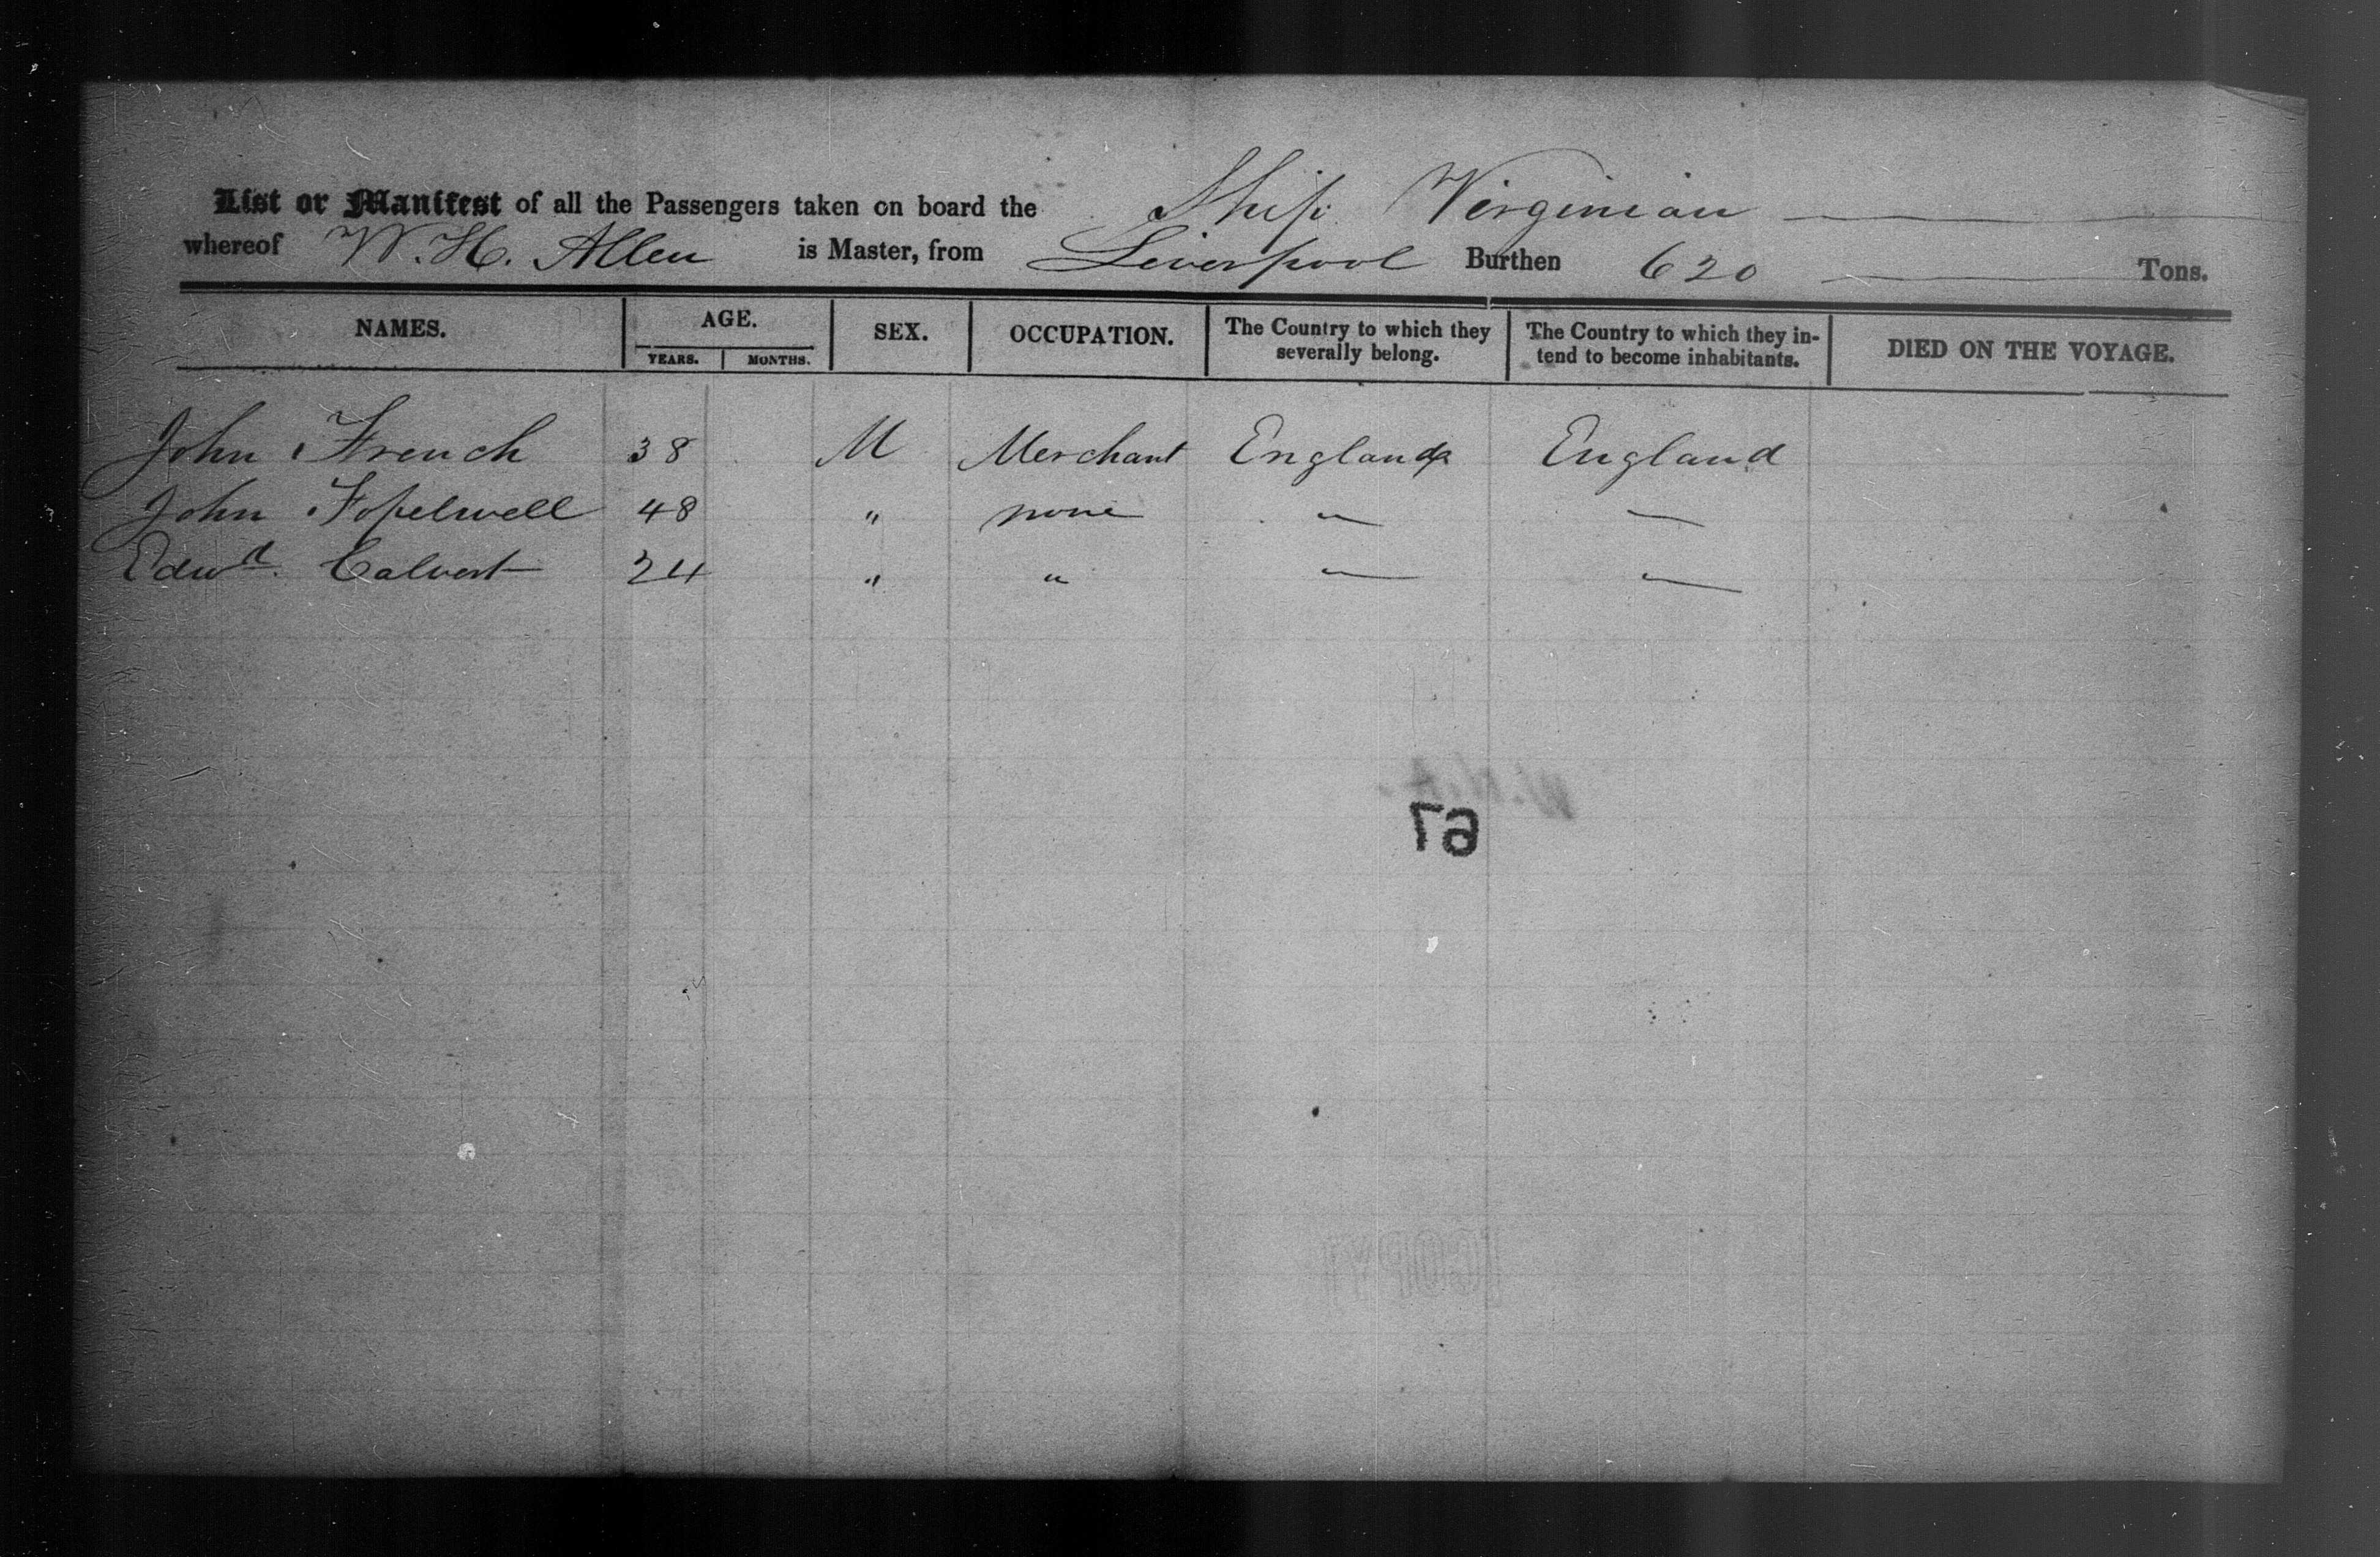 List or Manifest of all the Passengers taken on board the Ship Virginian
whereof W. H. Allen is Master, from Liverpool Burthen 620 Tons.
NAMES. AGE. YEARS. MONTHS. SEX. OCCUPATION. The Country to which they severally belong. The Country to which they intend to become inhabitants. DIED ON THE VOYAGE.
John French 38 M Merchant England England
John 48 " none — —
Edwd. Calvert 24 " " — —
W.H.A.
67
[COPY]